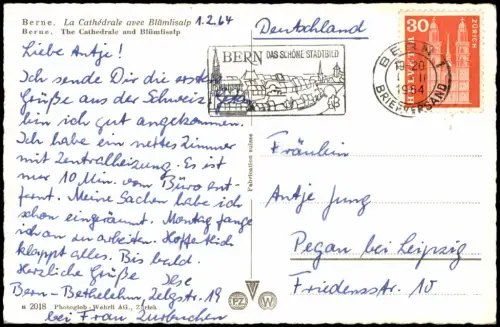 Berne. La Cathédrale avec Blümlisalp
Berne. The Cathedral and Blümlisalp
1.2.64
Deutschland
Liebe Antje!
Ich sende Dir die ersten
Grüße aus der Schweiz. Gestern
bin ich gut angekommen.
Ich habe ein nettes Zimmer
mit Zentralheizung. Es ist
nur 10 Min. vom Büro ent-
fernt. Meine Sachen habe ich
schon eingeräumt. Montag fange
ich an zu arbeiten. Hoffentlich
klappt alles. Bis bald.
Herzliche Grüße Ilse
Bern-Bethlehem, Zelgstr. 19
bei Frau Zurbuchen
BERN DAS SCHÖNE STADTBILD
BERN 1
19-20
1. II
1964
BRIEFVERSAND
30
HELVETIA
ZÜRICH
Fabrication suisse
Fräulein
Antje Jung
Pegau bei Leipzig
Friedensstr. 10
n 2018 Photoglob-Wehrli AG., Zürich
PZ W